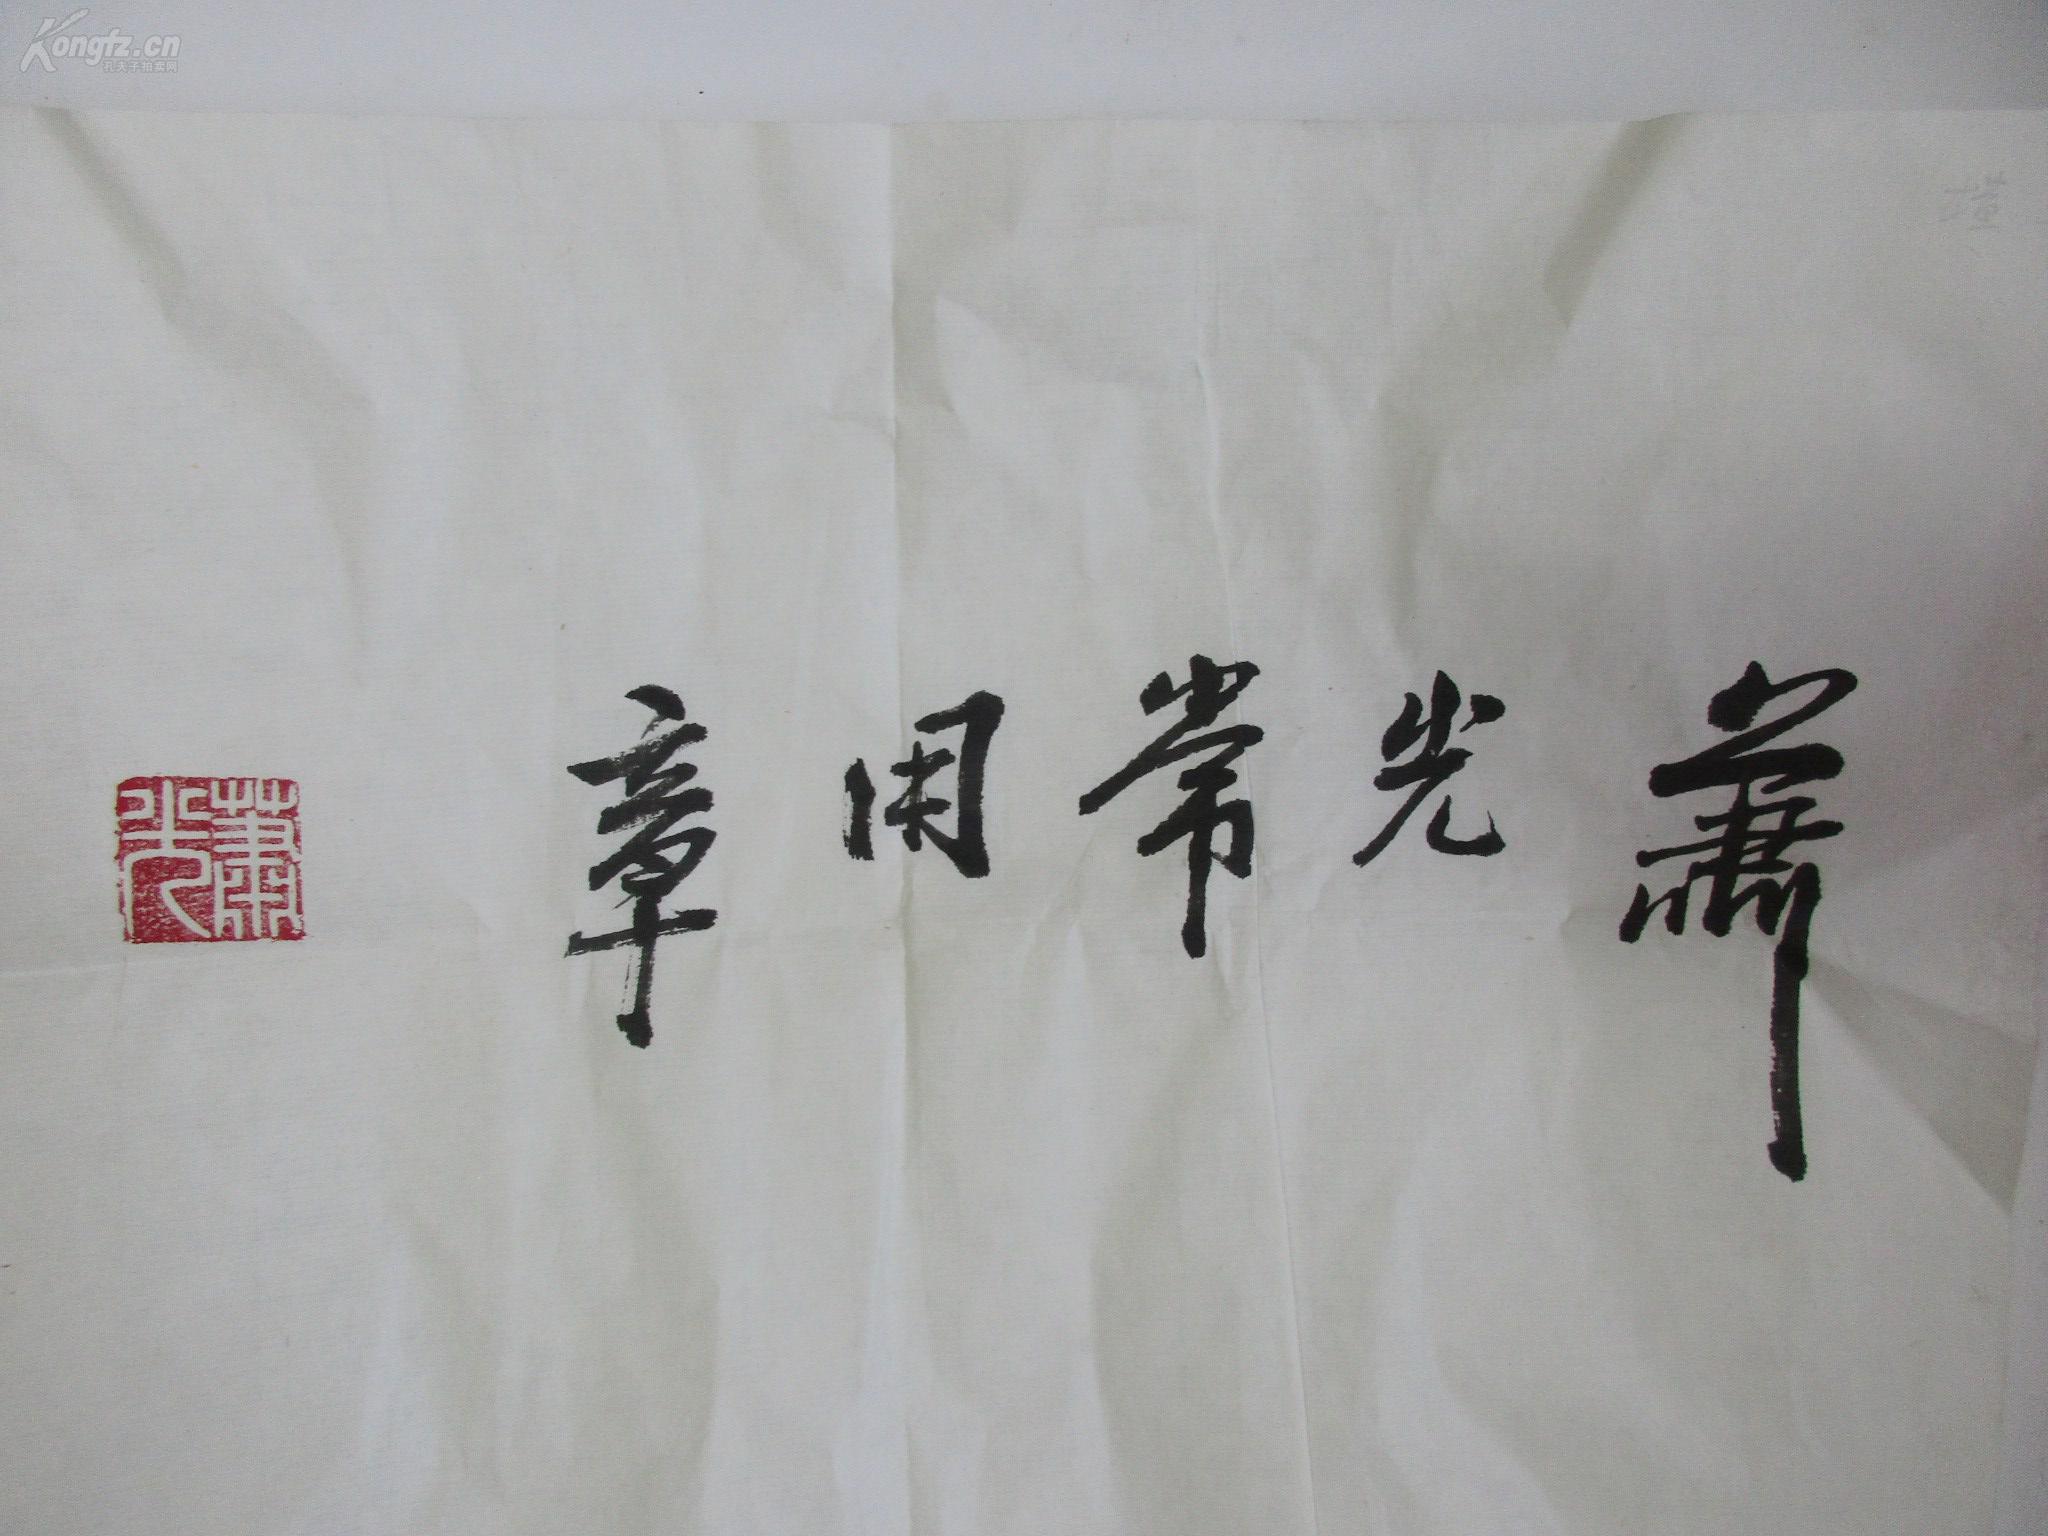 Kongfz.cn
孔夫子拍卖网
蕭光常用章
蕭光